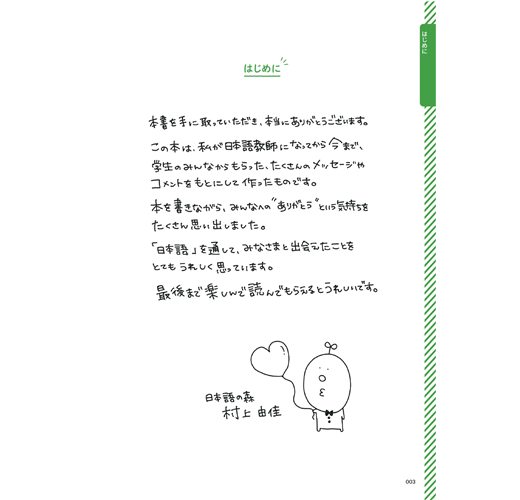 はじめに
はじめに
本書を手に取っていただき、本当にありがとうございます。
この本は、私が日本語教師になってから今まで、
学生のみんなからもらった、たくさんのメッセージや
コメントをもとにして作ったものです。
本を書きながら、みんなへの"ありがとう"という気持ちを
たくさん思い出しました。
「日本語」を通して、みなさまと出会えたことを
とてもうれしく思っています。
最後まで楽しんで読んでもらえるとうれしいです。
日本語の森
村上由佳
003